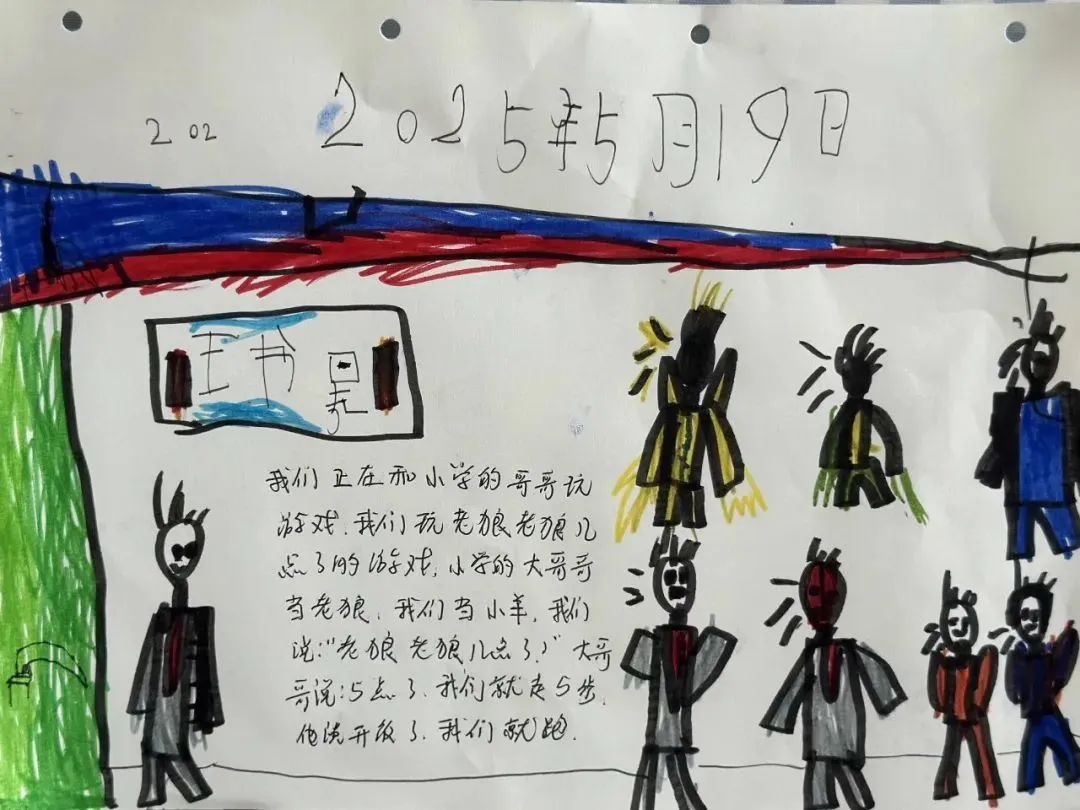 202
2025年5月19日
王书
我们正在和小学的哥哥玩
游戏，我们玩老狼老狼几
点了的游戏，小学的大哥哥
当老狼，我们当小羊，我们
说："老狼老狼几点了？"大哥
哥说：5点了，我们就走5步，
他说开饭了，我们就跑.